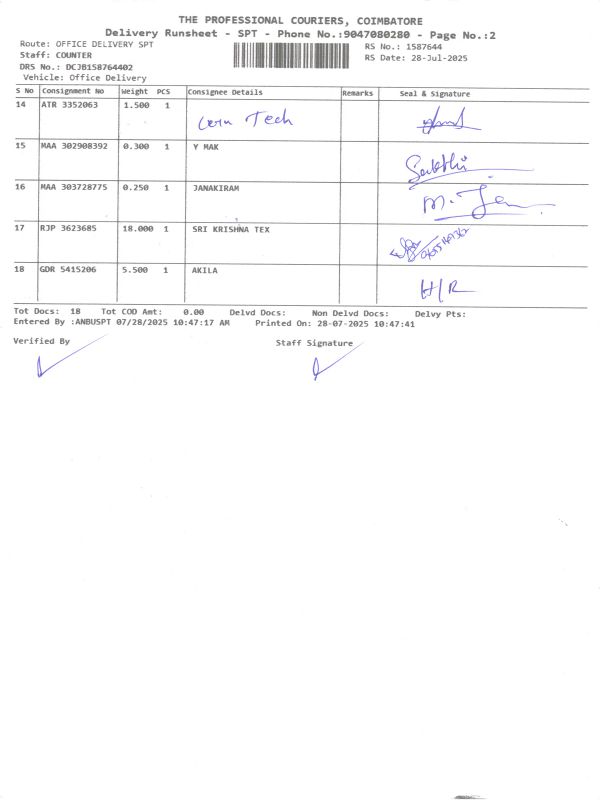 THE PROFESSIONAL COURIERS, COIMBATORE
Delivery Runsheet - SPT - Phone No.:9047080280 - Page No.:2
Route: OFFICE DELIVERY SPT
RS No.: 1587644
Staff: COUNTER
RS Date: 28-Jul-2025
DRS No.: DCJB158764402
Vehicle: Office Delivery
S No Consignment No Weight PCS Consignee Details Remarks Seal & Signature
14 ATR 3352063 1.500 1 Tech
15 MAA 302908392 0.300 1 Y MAK Sakthi
16 MAA 303728775 0.250 1 JANAKIRAM
17 RJP 3623685 18.000 1 SRI KRISHNA TEX
18 GDR 5415206 5.500 1 AKILA H/R
Tot Docs: 18 Tot COD Amt: 0.00 Delvd Docs: Non Delvd Docs: Delvy Pts:
Entered By :ANBUSPT 07/28/2025 10:47:17 AM Printed On: 28-07-2025 10:47:41
Verified By
Staff Signature